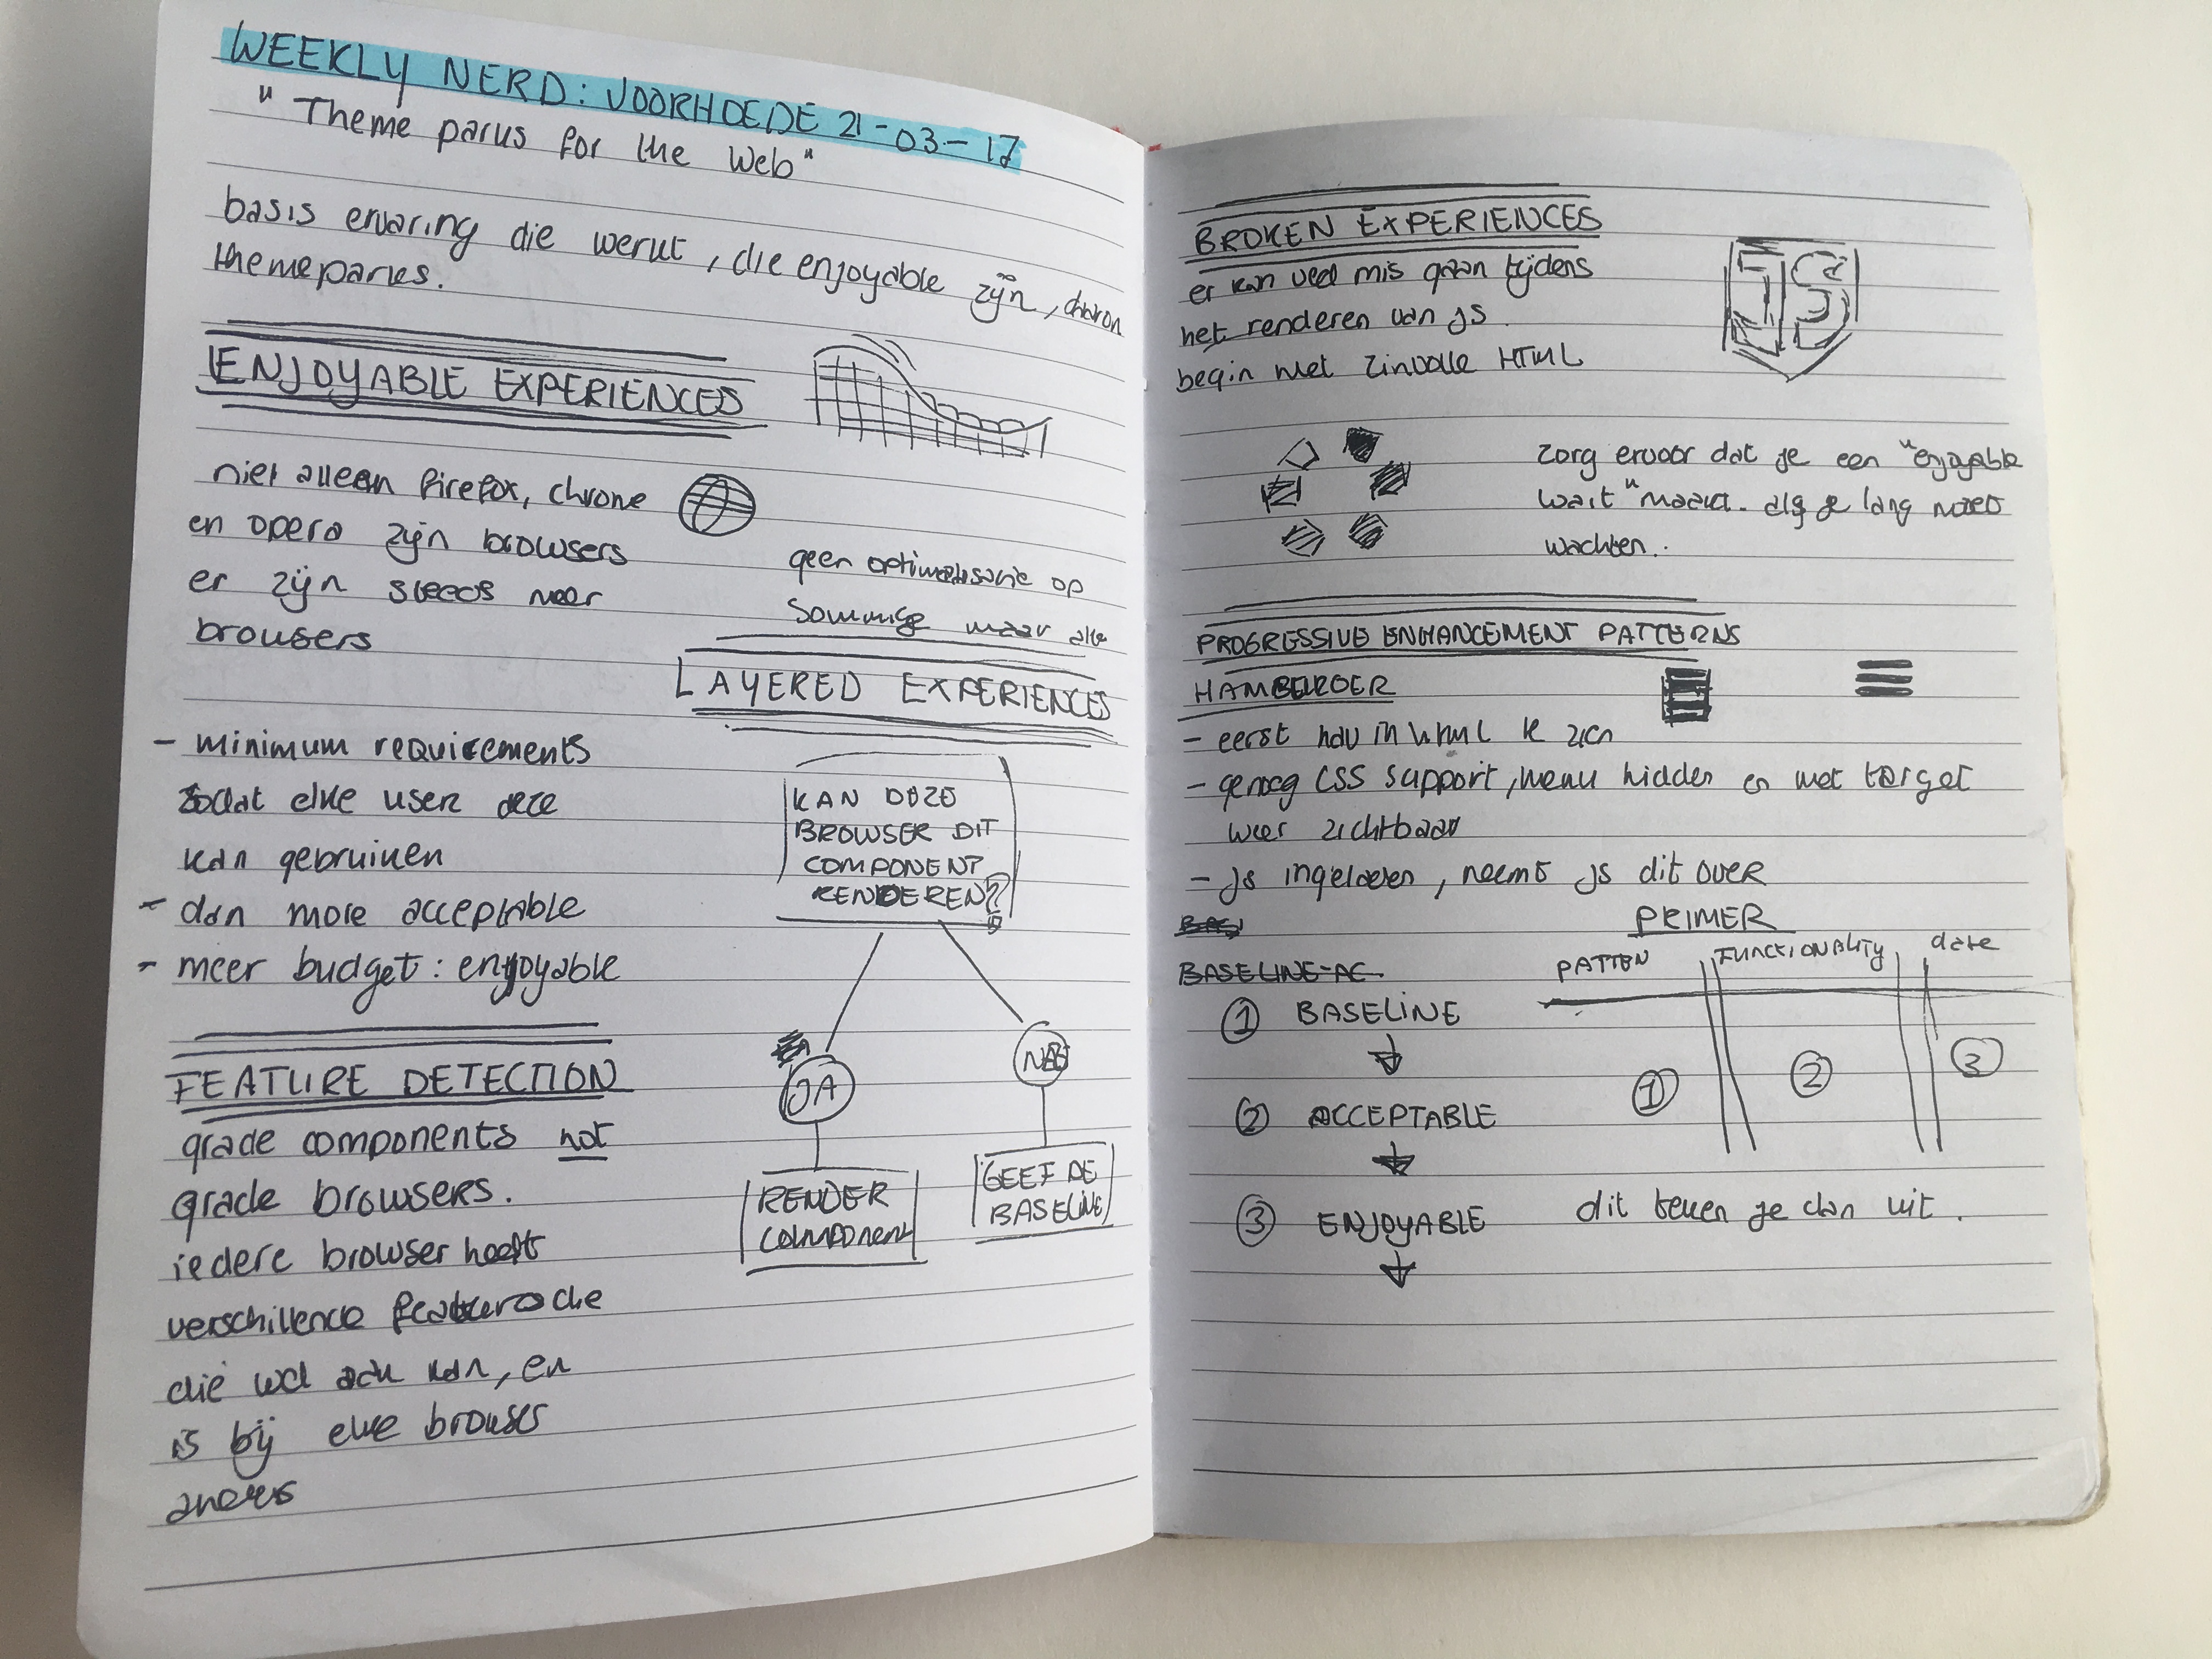 WEEKLY NERD: VOORHOEDE 21-03-17
"Theme parks for the Web"
basis ervaring die werkt, die enjoyable zijn, daarom
themeparks.
ENJOYABLE EXPERIENCES
niet alleen firefox, chrome
en opera zijn browsers
er zijn steeds meer
browsers
geen optimalisatie op
sommige maar alle
LAYERED EXPERIENCES
- minimum requirements
zodat elke user deze
kan gebruiken
- dan more acceptable
- meer budget: enjoyable
KAN DEZE
BROWSER DIT
COMPONENT
RENDEREN?
JA
NEE
RENDER
COMPONENT
GEEF DE
BASELINE
FEATURE DETECTION
grade components not
grade browsers.
iedere browser heeft
verschillende features die
die wel kan, en
is bij elke browser
anders
BROKEN EXPERIENCES
er kan veel mis gaan tijdens
het renderen van js.
begin met zinvolle HTML
JS
zorg ervoor dat je een "enjoyable
wait" maakt. als je lang moet
wachten..
PROGRESSIVE ENHANCEMENT PATTERNS
HAMBURGER
- eerst nav in html te zien
- genoeg CSS support, menu hidden en met target
weer zichtbaar
- js ingeladen, neemt js dit over
BAS
BASELINE-AC
① BASELINE
② ACCEPTABLE
③ ENJOYABLE
PRIMER
PATTEN FUNCTIONALITY date
① ② ③
dit teken je dan uit.